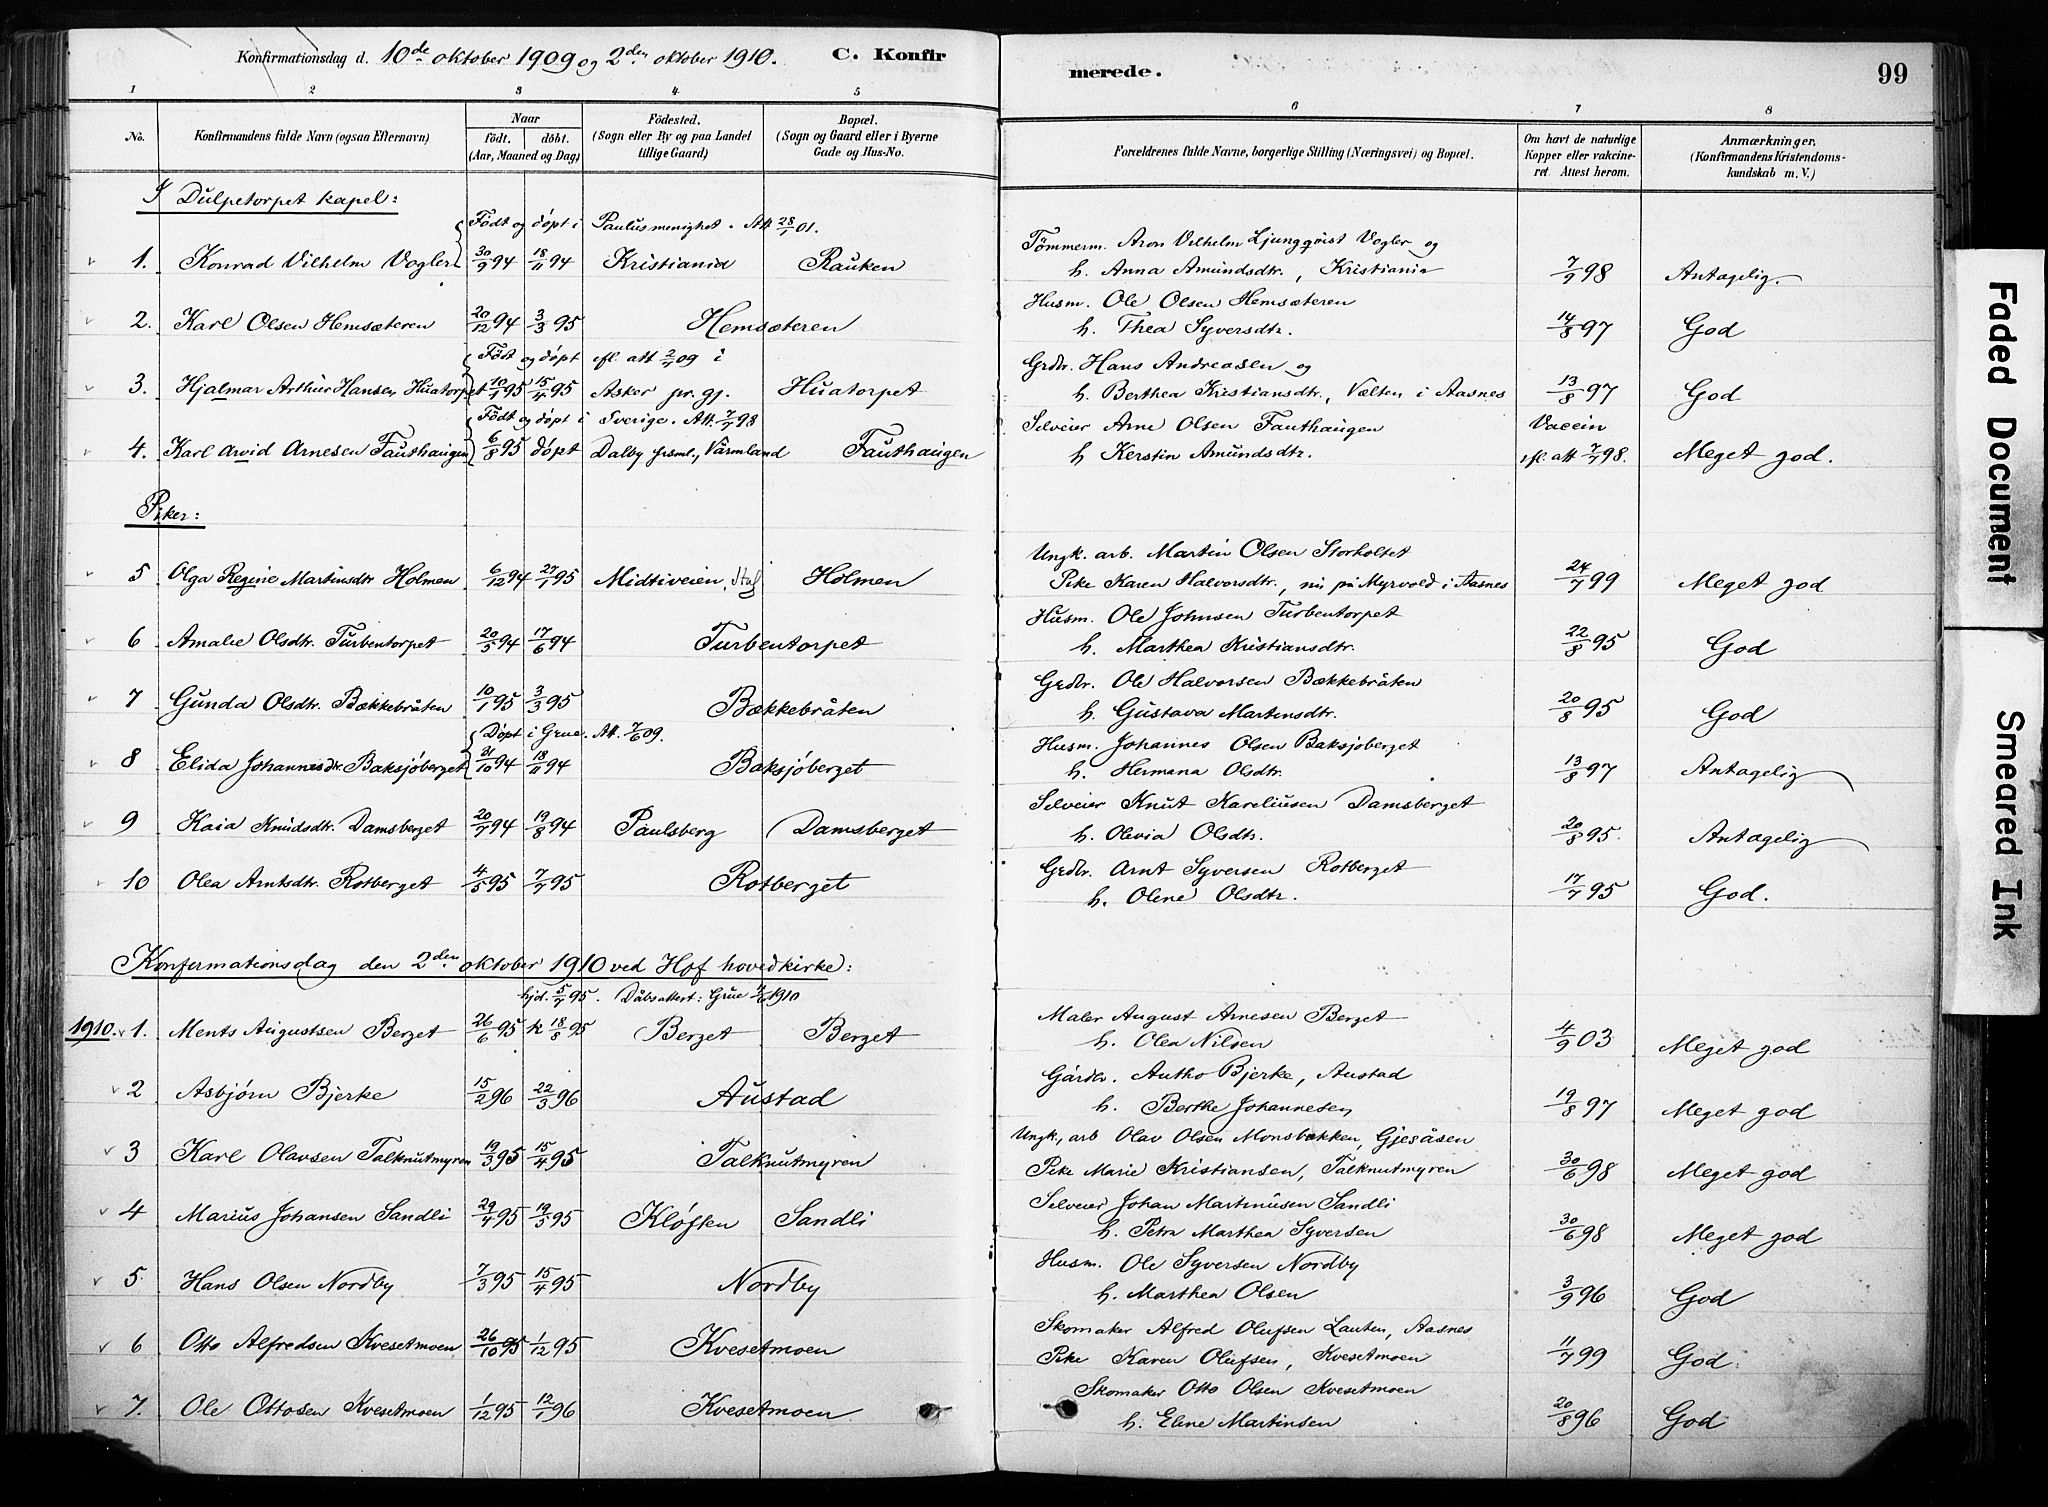 Konfirmationsdag d. 10de oktober 1909 og 2den oktober 1910. C. Konfirmerede. 99
1 2 3 4 5 6 7 8
No. Konfirmandens fulde Navn (ogsaa Efternavn) Naar født. døbt. (Aar, Maaned og Dag) Fødested. (Sogn eller By og paa Landet tillige Gaard) Bopæl. (Sogn og Gaard eller i Byerne Gade og Hus-No. Forældrenes fulde Navne, borgerlige Stilling (Næringsvei) og Bopæl. Om havt de naturlige Kopper eller vakcineret. Attest herom. Anmærkninger. (Konfirmandens Kristendomskundskab m. V.)
I Dulpetorpet kapel:
Født og døpt i Paulus menighet. Att 28/1 01.
1. Konrad Vilhelm Vogler 30/9 94 18/11 94 Kristiania Rauken Tømmerm. Aron Vilhelm Ljungqvist Vogler og
h. Anna Amundsdtr., Kristiania 7/9 98 Antagelig.
2. Karl Olsen Hemsæteren 20/12 94 3/3 95 Hemsæteren Husm. Ole Olsen Hemsæteren
h. Thea Syversdtr. 14/8 97 God
Født og døpt ifl. att 2/7 09 i
3. Hjalmar Arthur Hansen Huatorpet 10/1 95 15/4 95 Asker pr. gj. Huatorpet Grdbr. Hans Andreasen og
h. Berthea Kristiansdtr., Vælten i Aasnes 13/8 97 God
Født og døpt i Sverige. Att. 7/7 98
4. Karl Arvid Arnesen Fauthaugen 6/8 95 døpt Dalby forsml., Värmland Fauthaugen Selveier Arne Olsen Fauthaugen
h Kerstin Amundsdtr. Vaccin ifl. att 7/7 98. Meget god.
Piker:
5 Olga Regine Martinsdtr Holmen 6/12 94 27/1 95 Midtiveien, Holmen Ungk. arb. Martin Olsen Storholtet
Pike Karen Halvorsdtr., nu på Myrvold i Aasnes 24/7 99 Meget god
6 Amalie Olsdtr. Turbentorpet 20/5 94 17/6 94 Turbentorpet Husm. Ole Johnsen Turbentorpet
h. Marthea Kristiansdtr. 22/8 95 God
7 Gunda Olsdtr. Bækkebråten 10/1 95 3/3 95 Bækkebråten Grdbr. Ole Halvorsen Bækkebråten
h. Gustava Martinsdtr. 20/8 95 God
Døpt i Grue. Att. 7/6 09.
8 Elida Johannesdtr. Baksjøberget 31/10 94 18/11 94 Baksjøberget Husm. Johannes Olsen Baksjøberget
h. Hermana Olsdtr. 13/8 97 Antagelig
9 Kaia Knudsdtr. Damsberget 20/7 94 19/8 94 Paulsberg Damsberget Selveier Knut Kareliusen Damsberget
h. Olevia Olsdtr. 20/8 95. Antagelig
10 Olea Arntsdtr. Rotberget 4/5 95 7/7 95 Rotberget Grdbr. Arnt Syversen Rotberget
h. Olene Olsdtr. 17/7 95 God.
Konfermationsdag den 2den oktober 1910 ved Hof hovedkirke:
hjd. 5/7 95. Dåbsattest: Grue 1910
1910. 1. Ments Augustsen Berget 26/6 95 k 18/8 95 Berget Berget Maler August Arnesen Berget
h. Olea Nilsen 4/9 03 Meget god
2 Asbjørn Bjerke 15/2 96 22/3 96 Austad Gårdbr. Autho Bjerke, Austad
h. Berthe Johannesen 19/8 97 Meget god
3 Karl Olavsen Falknutmyren 19/3 95 15/4 95 Falknutmyren Ungk., arb Olav Olsen Monsbækken, Gjesåsen
Pike Marie Kristiansen, Falknutmyren 30/6 98 Meget god
4 Marius Johansen Sandli 29/4 95 19/5 95 Kløften Sandli Selveier Johan Martinusen Sandli
h. Petra Marthea Syversen 30/6 98 Meget god
5. Hans Olsen Nordby 7/3 95 15/4 95 Nordby Husm. Ole Syversen Nordby
h. Marthea Olsen 3/9 96 God
6 Otto Alfredsen Kvesetmoen 26/10 95 1/12 95 Kvesetmoen Skomaker Alfred Olufsen Lauten, Aasnes
Pike Karen Olufsen, Kvesetmoen 11/7 99 God.
7. Ole Ottosen Kvesetmoen 1/12 95 12/1 96 Kvesetmoen Skomaker Otto Olsen Kvesetmoen
h. Eline Martinsen 20/8 96 God
Faded Document
Smeared Ink